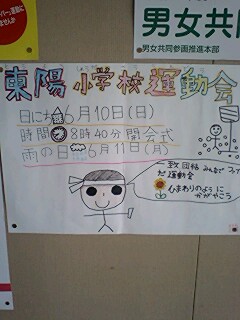 ません
男女共
男女共同参画推進本部
東陽小学校運動会
日にち 6月10日(日)
時間 8時40分 開会式
雨の日 6月11日(月)
一致団結 みんなで
だ 運動会
ひまわりのように
かがやこう